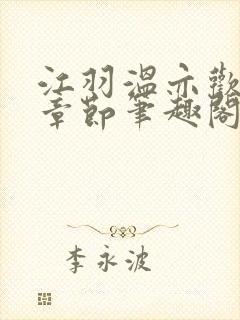 江羽温亦歡
章節筆趣閣
李永波